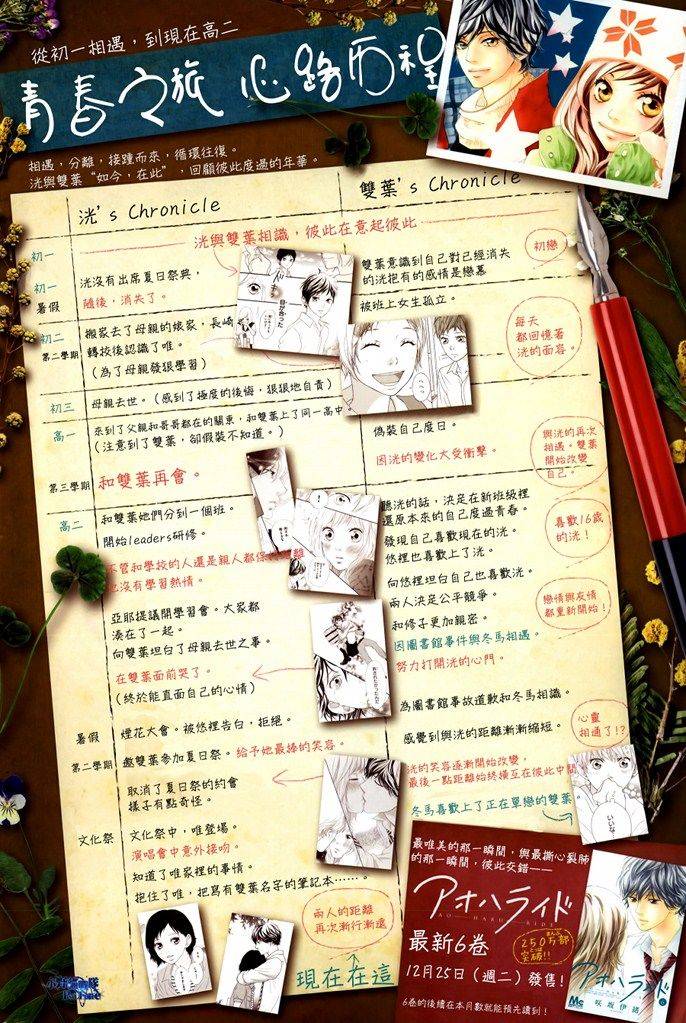 從初一相遇，到現在高二
青春之旅 心路历程
相遇，分離，接踵而來，循環往復。
洸與雙葉“如今，在此”，回顧彼此度過的年華。
洸's Chronicle
雙葉's Chronicle
初一
洸與雙葉相識，彼此在意起彼此
初一
暑假
洸沒有出席夏日祭典，
隨後，消失了。
雙葉意識到自己對已經消失
的洸抱有的感情是戀慕
初戀
被班上女生孤立。
初二
第二學期
搬家去了母親的娘家，長崎
轉校後認識了唯。
(為了母親發狠學習)
每天
都回憶著
洸的面容。
初三
母親去世。(感到了極度的後悔，狠狠地自責)
高一
來到了父親和哥哥都在的關東，和雙葉上了同一高中
(注意到了雙葉，卻假裝不知道。)
偽裝自己度日。
因洸的變化大受衝擊。
與洸的再次
相遇。雙葉
開始改變
自己。
第三學期
和雙葉再會。
高二
和雙葉她們分到一個班。
開始leaders研修。
不管和學校的人還是親人都保
離
也沒有學習熱情。
聽洸的話，決定在新班級裡
還原本來的自己度過青春。
發現自己喜歡現在的洸。
悠裡也喜歡上了洸。
喜歡16歲
的洸！
向悠裡坦白自己也喜歡洸。
兩人決定公平競爭。
和修子更加親密。
因圖書館事件與冬馬相遇。
努力打開洸的心門。
戀情與友情
都重新開始！
亞耶提議開學習會。大家都
湊在了一起。
向雙葉坦白了母親去世之事。
在雙葉面前哭了。
(終於能直面自己的心情)
為圖書館事故道歉和冬馬相識。
暑假
煙花大會。被悠裡告白，拒絕。
感覺到與洸的距離漸漸縮短。
心靈
相通了!?
第二學期
邀雙葉參加夏日祭。給予她最棒的笑容。
取消了夏日祭的約會
樣子有點奇怪。
洸的笑容逐漸開始改變，
最後一點距離始終橫亙在彼此中間
冬馬喜歡上了正在單戀的雙葉。
いいな
文化祭
文化祭中，唯登場。
演唱會中意外接吻。
知道了唯家裡的事情。
抱住了唯，把寫有雙葉名字的筆記本……。
兩人的距離
再次漸行漸遠
現在在這
最唯美的那一瞬間，與最撕心裂肺
的那一瞬間，彼此交錯——
アオハライド
AO HARU RIDE
最新6卷
まんぶ
250万部
突破!!
12月25日（週二）發售！
6卷的後續在本月數就能預先讀到！
アオハライド
6
咲坂伊緒